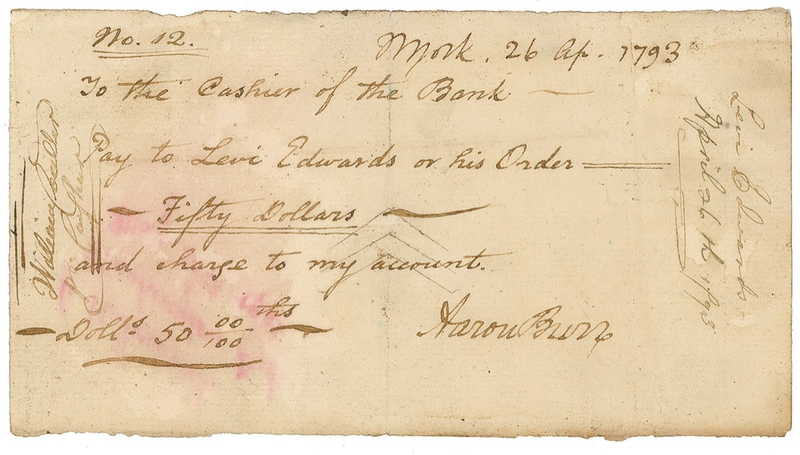 No. 12.
NYork, 26 Ap. 1793
To the Cashier of the Bank
Pay to Levi Edwards or his Order
Fifty Dollars
and charge to my account.
Dolls 50 00/100 ths
Aaron Burr
William
Cashier
Levi Edwards
April 26th 1793